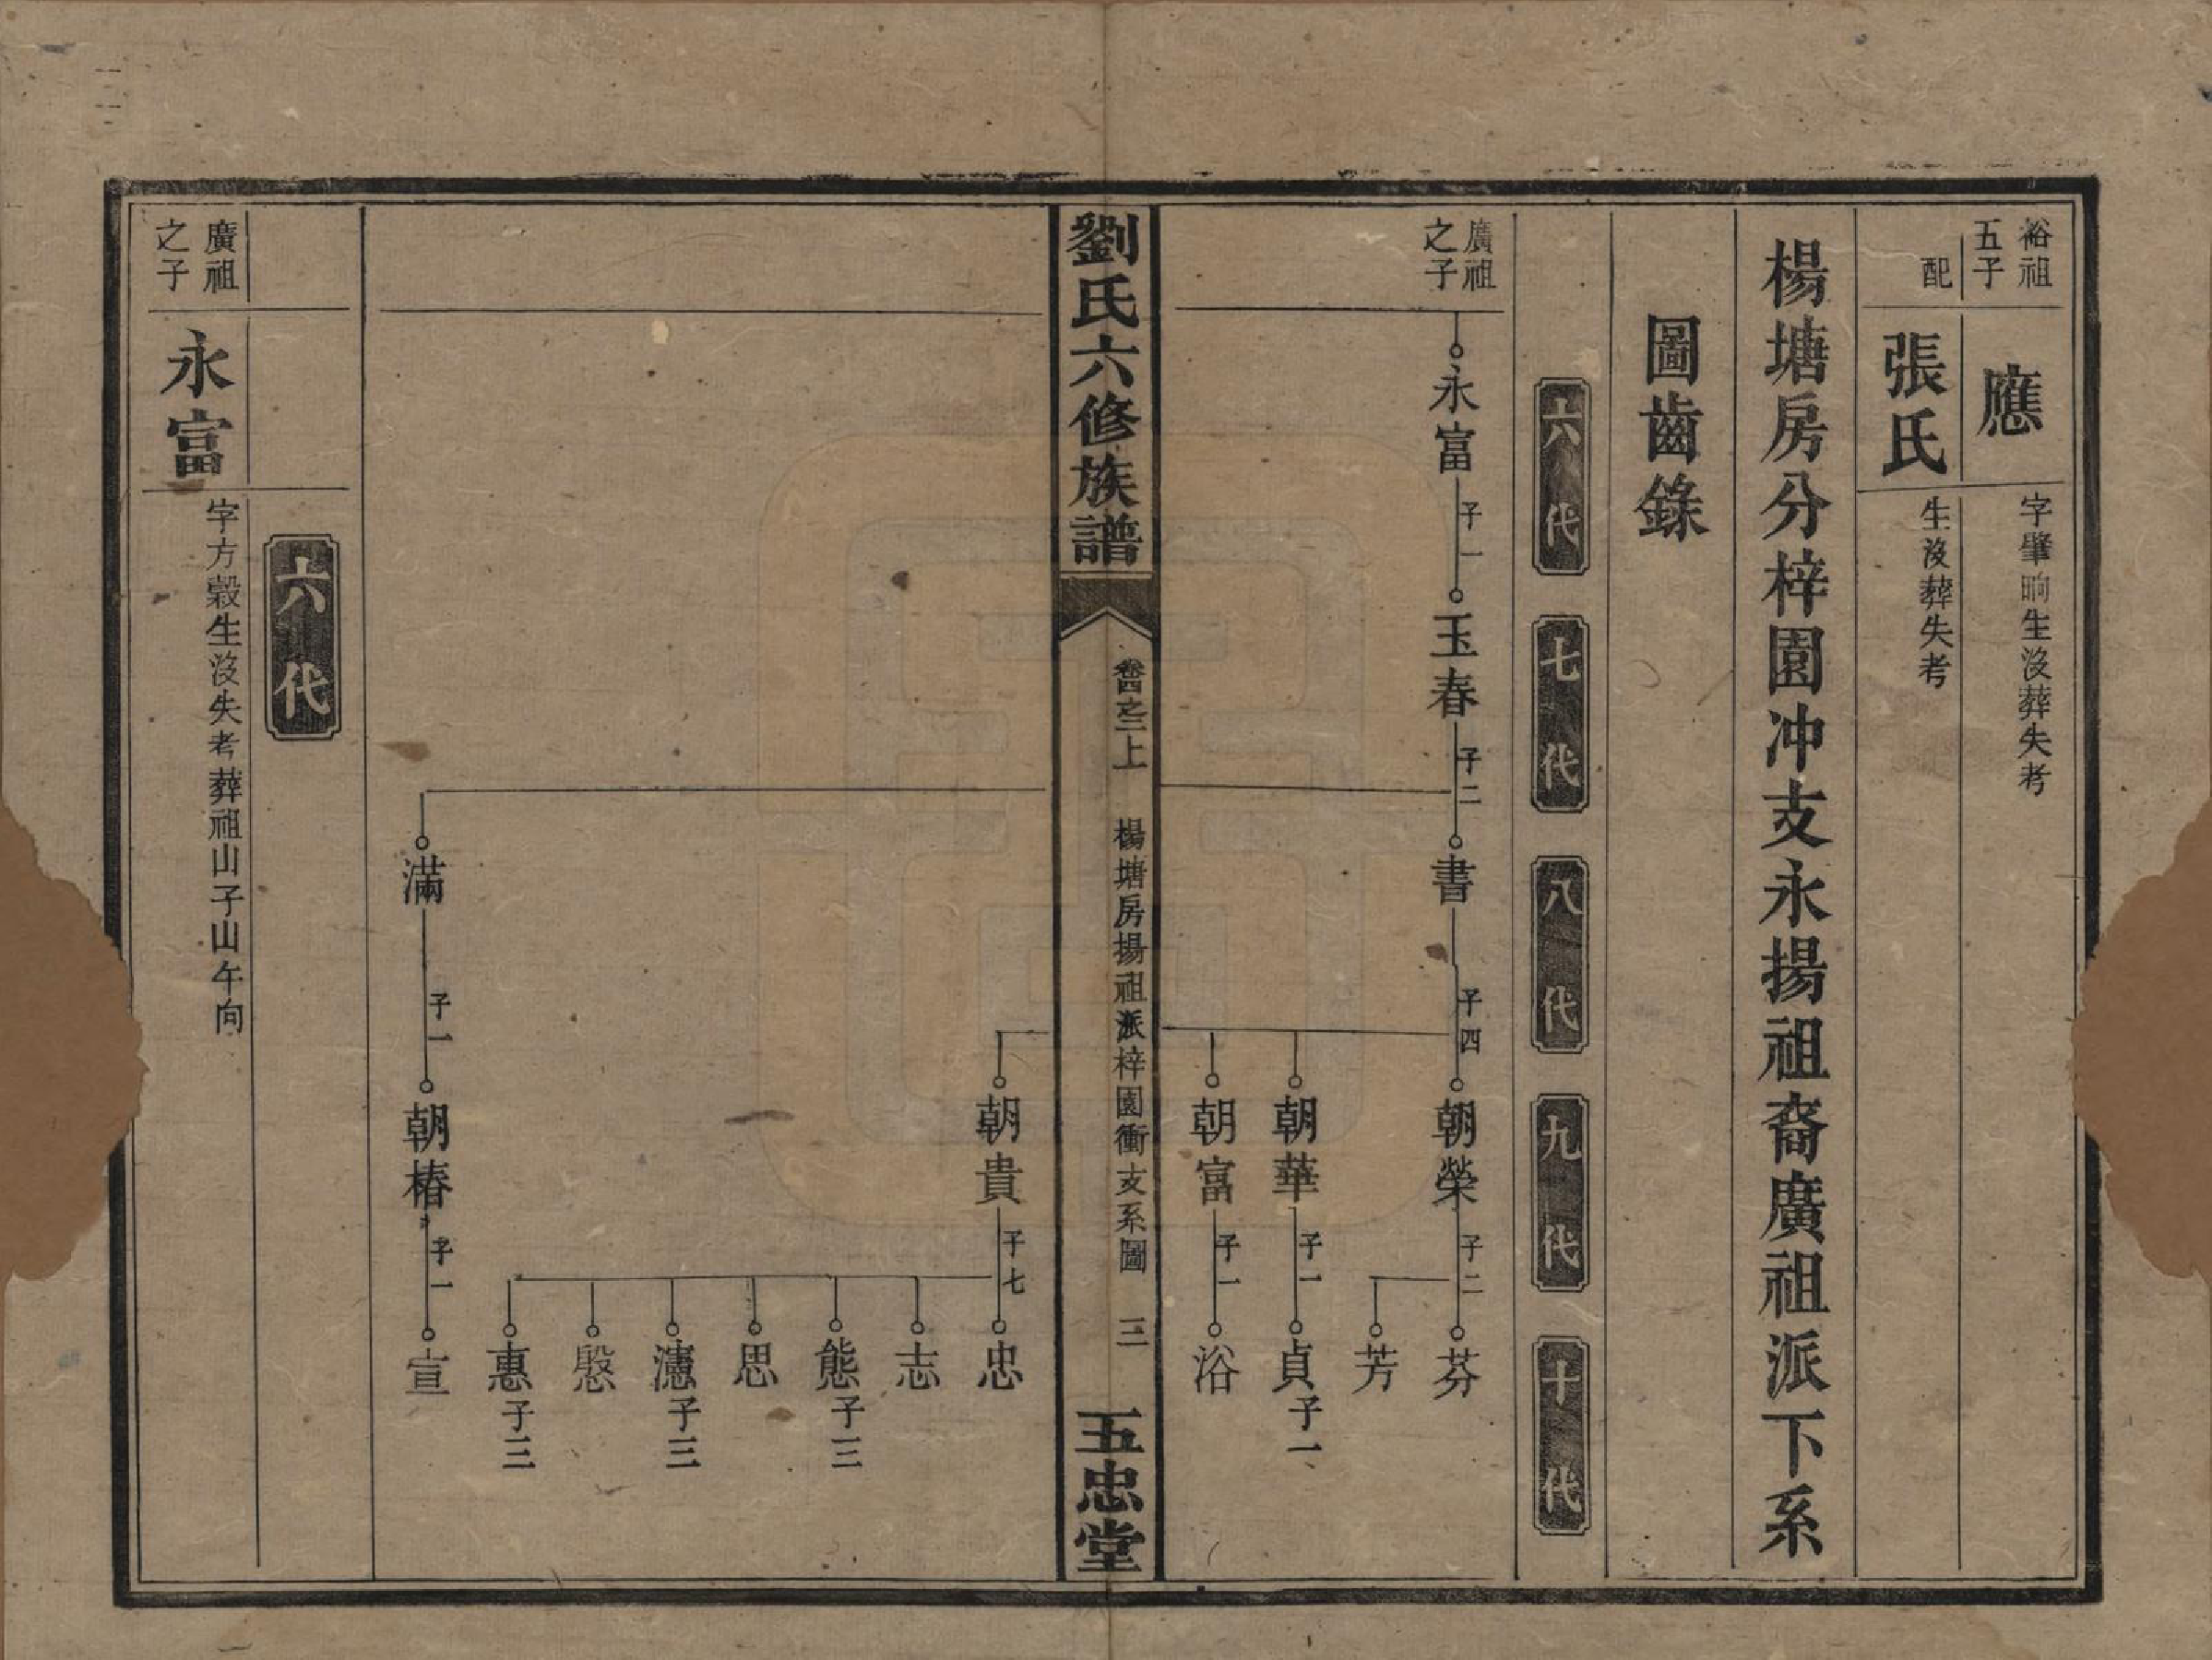 裕祖
五子
應
字肇晌生沒葬失考
配
張氏
生沒葬失考
楊塘房分梓園冲支永揚祖裔廣祖派下系
圖齒錄
六代
七代
八代
九代
十代
廣祖
之子
永富 子一
玉春 子二
書 子四
朝榮 子二
芬
芳
朝華 子一
貞 子一
朝富 子一
浴
劉氏六修族譜
卷四之三上
楊塘房揚祖派梓園衝支系圖
三
五忠堂
朝貴 子七
忠
志
態 子三
思
憲 子三
慇
惠 子三
滿 子一
朝椿 子一
宣
六代
廣祖
之子
永富
字方穀生沒失考葬祖山子山午向